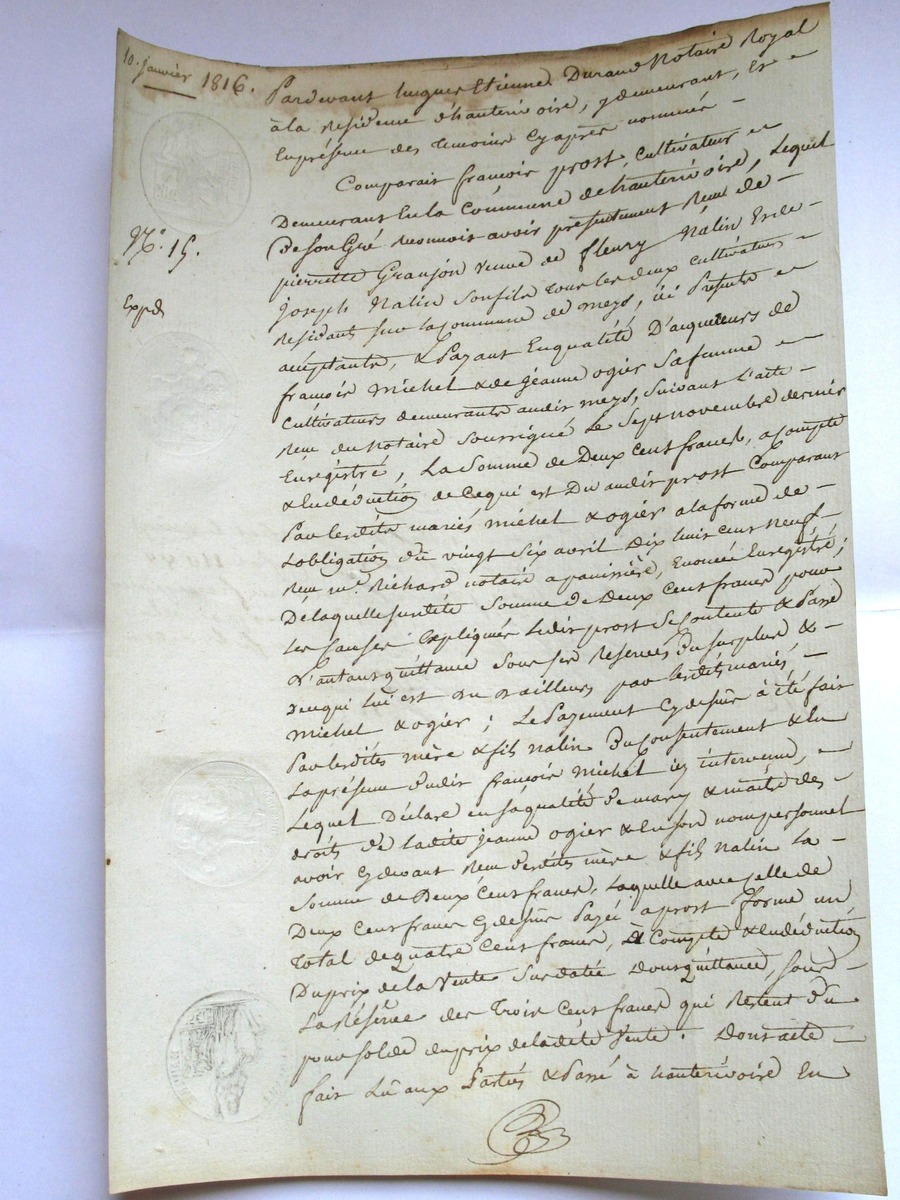 10. Janvier 1816.
N.° 15.
Expd
Pardevant hugues Etienne Durand Notaire Royal
à la Residence d'hauterivoire, y demeurant, Et
En présence des Temoins Cy après nommés
Comparait françois prost, Cultivateur
Demeurant En la Commune de hauterivoire, Lequel
de Son Gré Reconnoit avoir présentement Reçu de
pierrette Granjon veuve de fleury Nalin Et de
Joseph Nalin Son fils Tous les deux cultivateurs
Residant Sur la Commune de meys, ici Présents
acceptants, & Payant En qualité D'acquéreurs de
françois Michel & de jeanne ogier Sa femme
Cultivateurs demeurants audit meys, Suivant L'acte
Reçu du Notaire Soussigné Le Sept novembre dernier
Enregistré, La Somme de Deux Cent francs, a compte
& En déduction de Ce qui est Du audit prost Comparant
Par lesdits mariés michel & ogier a la forme de
L'obligation du vingt Six avril Dix huit Cent Neuf
Reçu m.e Richard notaire a panissière, Enoncée Enregistré;
De laquelle Susdite Somme de Deux Cent francs pour
Les Causes Expliquées Ledit prost Se Contente & Passe
D'autant quittance Sous Ses Reserves du Surplus &
de ce qui lui est Du d'ailleurs par lesdits mariés
michel & ogier; Le Payement Cy dessus à été fait
Par lesdites mère & fils nalin du Consentement & En
La présence dudit françois Michel ici intervenu,
Lequel Déclare en Sa qualité de mary & maitre des
droits de Ladite jeanne ogier & En Son nom personnel
avoir Cy devant Reçu desdites mère & fils Nalin La
Somme de Deux Cent francs, Laquelle avec Celle de
Deux Cent francs Cy dessus Payée a prost forme un
Total de quatre Cent francs, à Compte & En déduction
Du prix de la Vente Sus datée Dont quittance, Sous
La Réserve des Trois Cent francs qui Restent du
pour Solde du prix de ladite Vente. Dont acte
fait Lû aux Parties & Passé à hauterivoire En